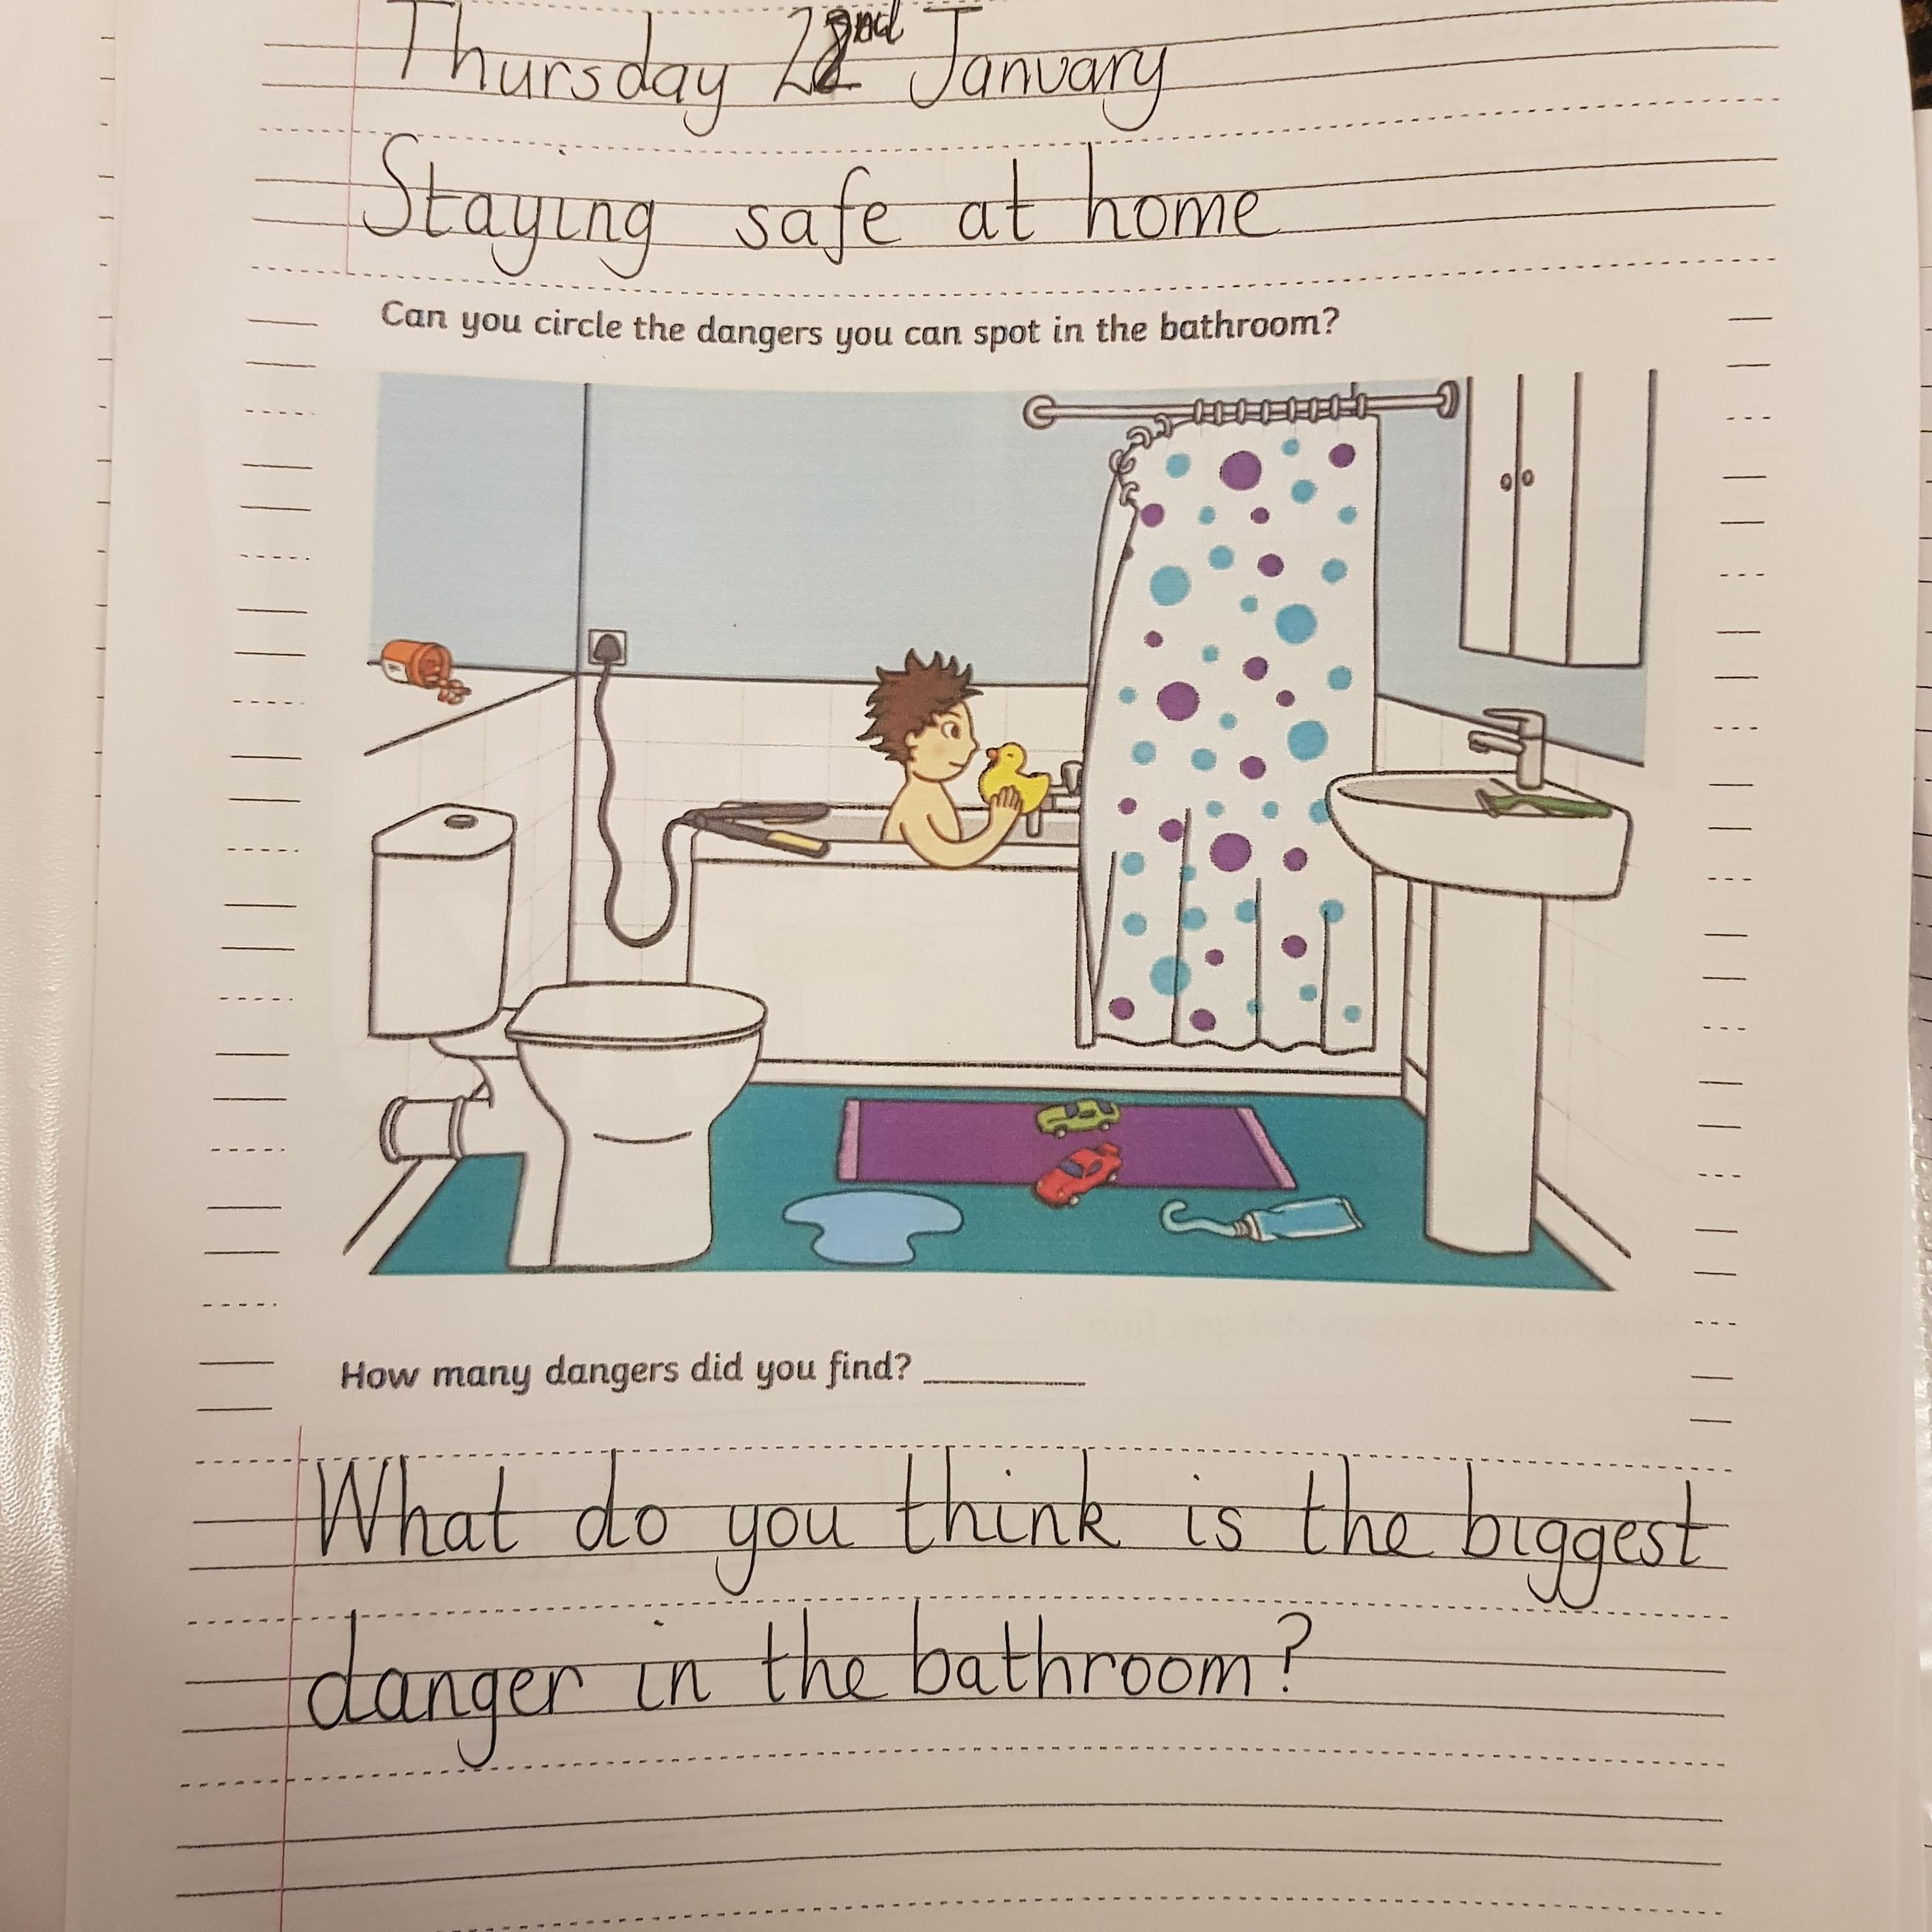 Thursday 22nd January
Staying safe at home
Can you circle the dangers you can spot in the bathroom?
How many dangers did you find? ________
What do you think is the biggest
danger in the bathroom?